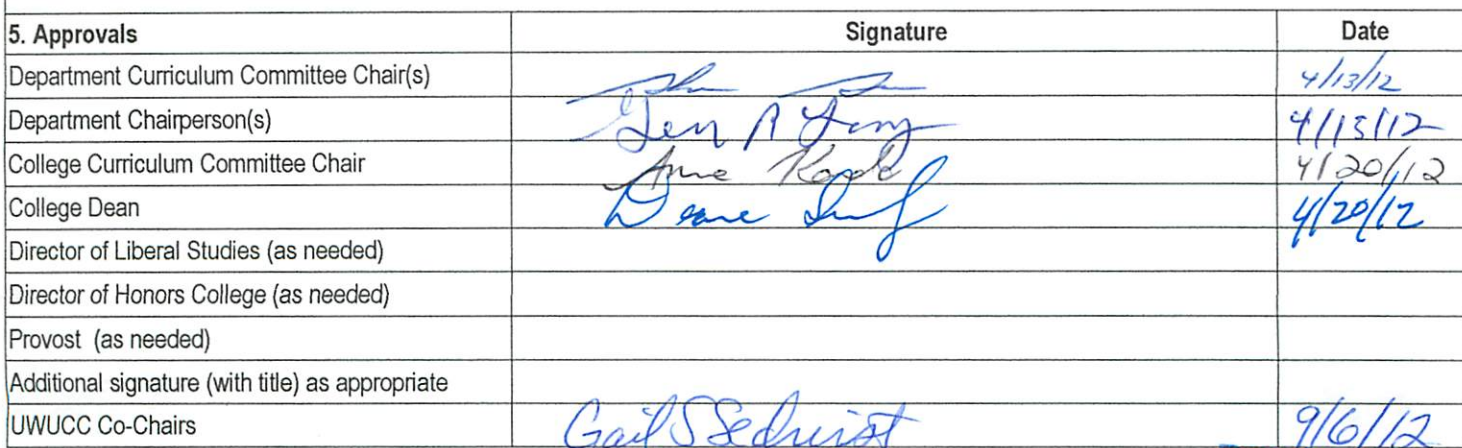 5. Approvals Signature Date
Department Curriculum Committee Chair(s) 4/13/12
Department Chairperson(s) 4/13/12
College Curriculum Committee Chair Anne 4/20/12
College Dean 4/20/12
Director of Liberal Studies (as needed)
Director of Honors College (as needed)
Provost (as needed)
Additional signature (with title) as appropriate
UWUCC Co-Chairs Gail S Sechrist 9/6/12